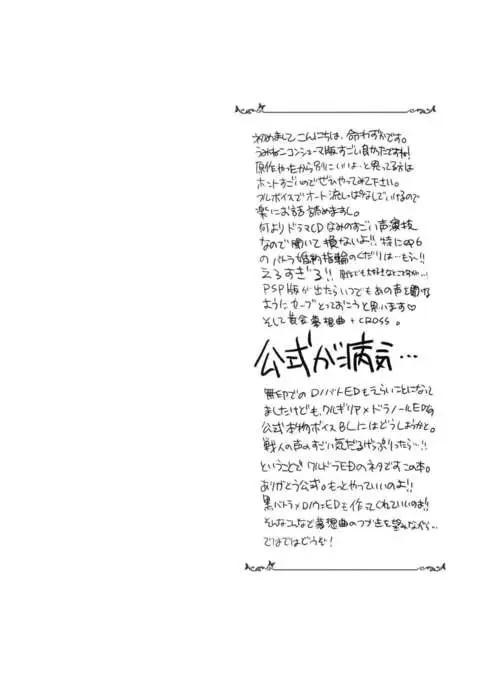 初めましてこんにちは、命わずかです。
うみねこコンシューマ版すごい良かたですね!
原作やったから別にいいよ…と思ってる方は
ホントすごいのでぜひやってみて下さい。
フルボイスでオート流しっぱなしでいけるので
楽にお話読めますし。
何よりドラマCDなみのすごい声演技
なので聞いて損ないよ!!特にep6
のバトラ婚約指輪のくだりは…もう…!!
えろすぎる!!
PSP版が出たらいつでもあの声を聞け
ようにセーブとっておこうと思います♡
そして黄金夢想曲+CROSS。
公式が病気…
無印でのロノバトEDもえらいことになって
ましたけども、ワルギリア×ドラノールEDの
公式本物ボイスBLにはどうしようかと。
戦人の声のすごい気だるげっぷりったら…!!
ということでワルドラEDのネタですこの本。
ありがとう公式。もっとやっていいのよ!!
黒バトラ×ロノウェEDも作ってくれていいのよ!!
そんなこんなで夢想曲のつづきを望みながら…
ではではどうぞ!